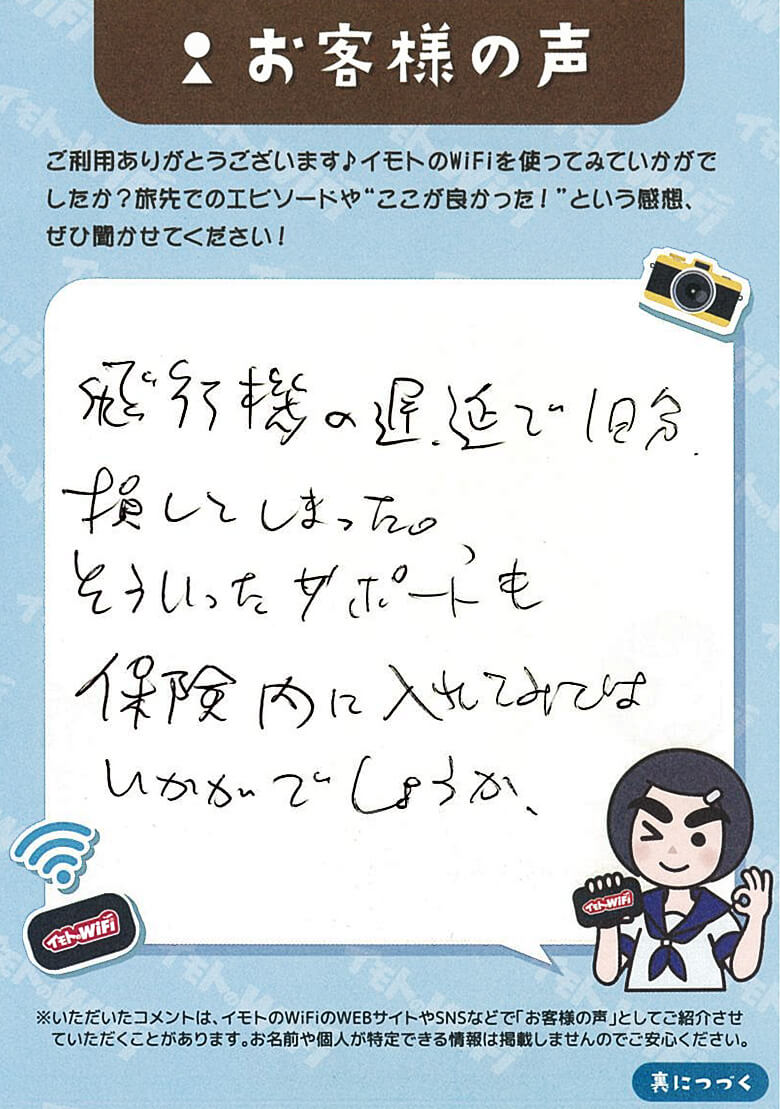 お客様の声
ご利用ありがとうございます♪イモトのWiFiを使ってみていかがで
したか?旅先でのエピソードや“ここが良かった!”という感想、
ぜひ聞かせてください!
飛行機の遅延で1日分
損してしまった。
そういったサポートも
保険内に入れてみては
いかがでしょうか、
イモトのWiFi
イモトのWiFi
※いただいたコメントは、イモトのWiFiのWEBサイトやSNSなどで「お客様の声」としてご紹介させ
ていただくことがあります。お名前や個人が特定できる情報は掲載しませんのでご安心ください。
裏につづく